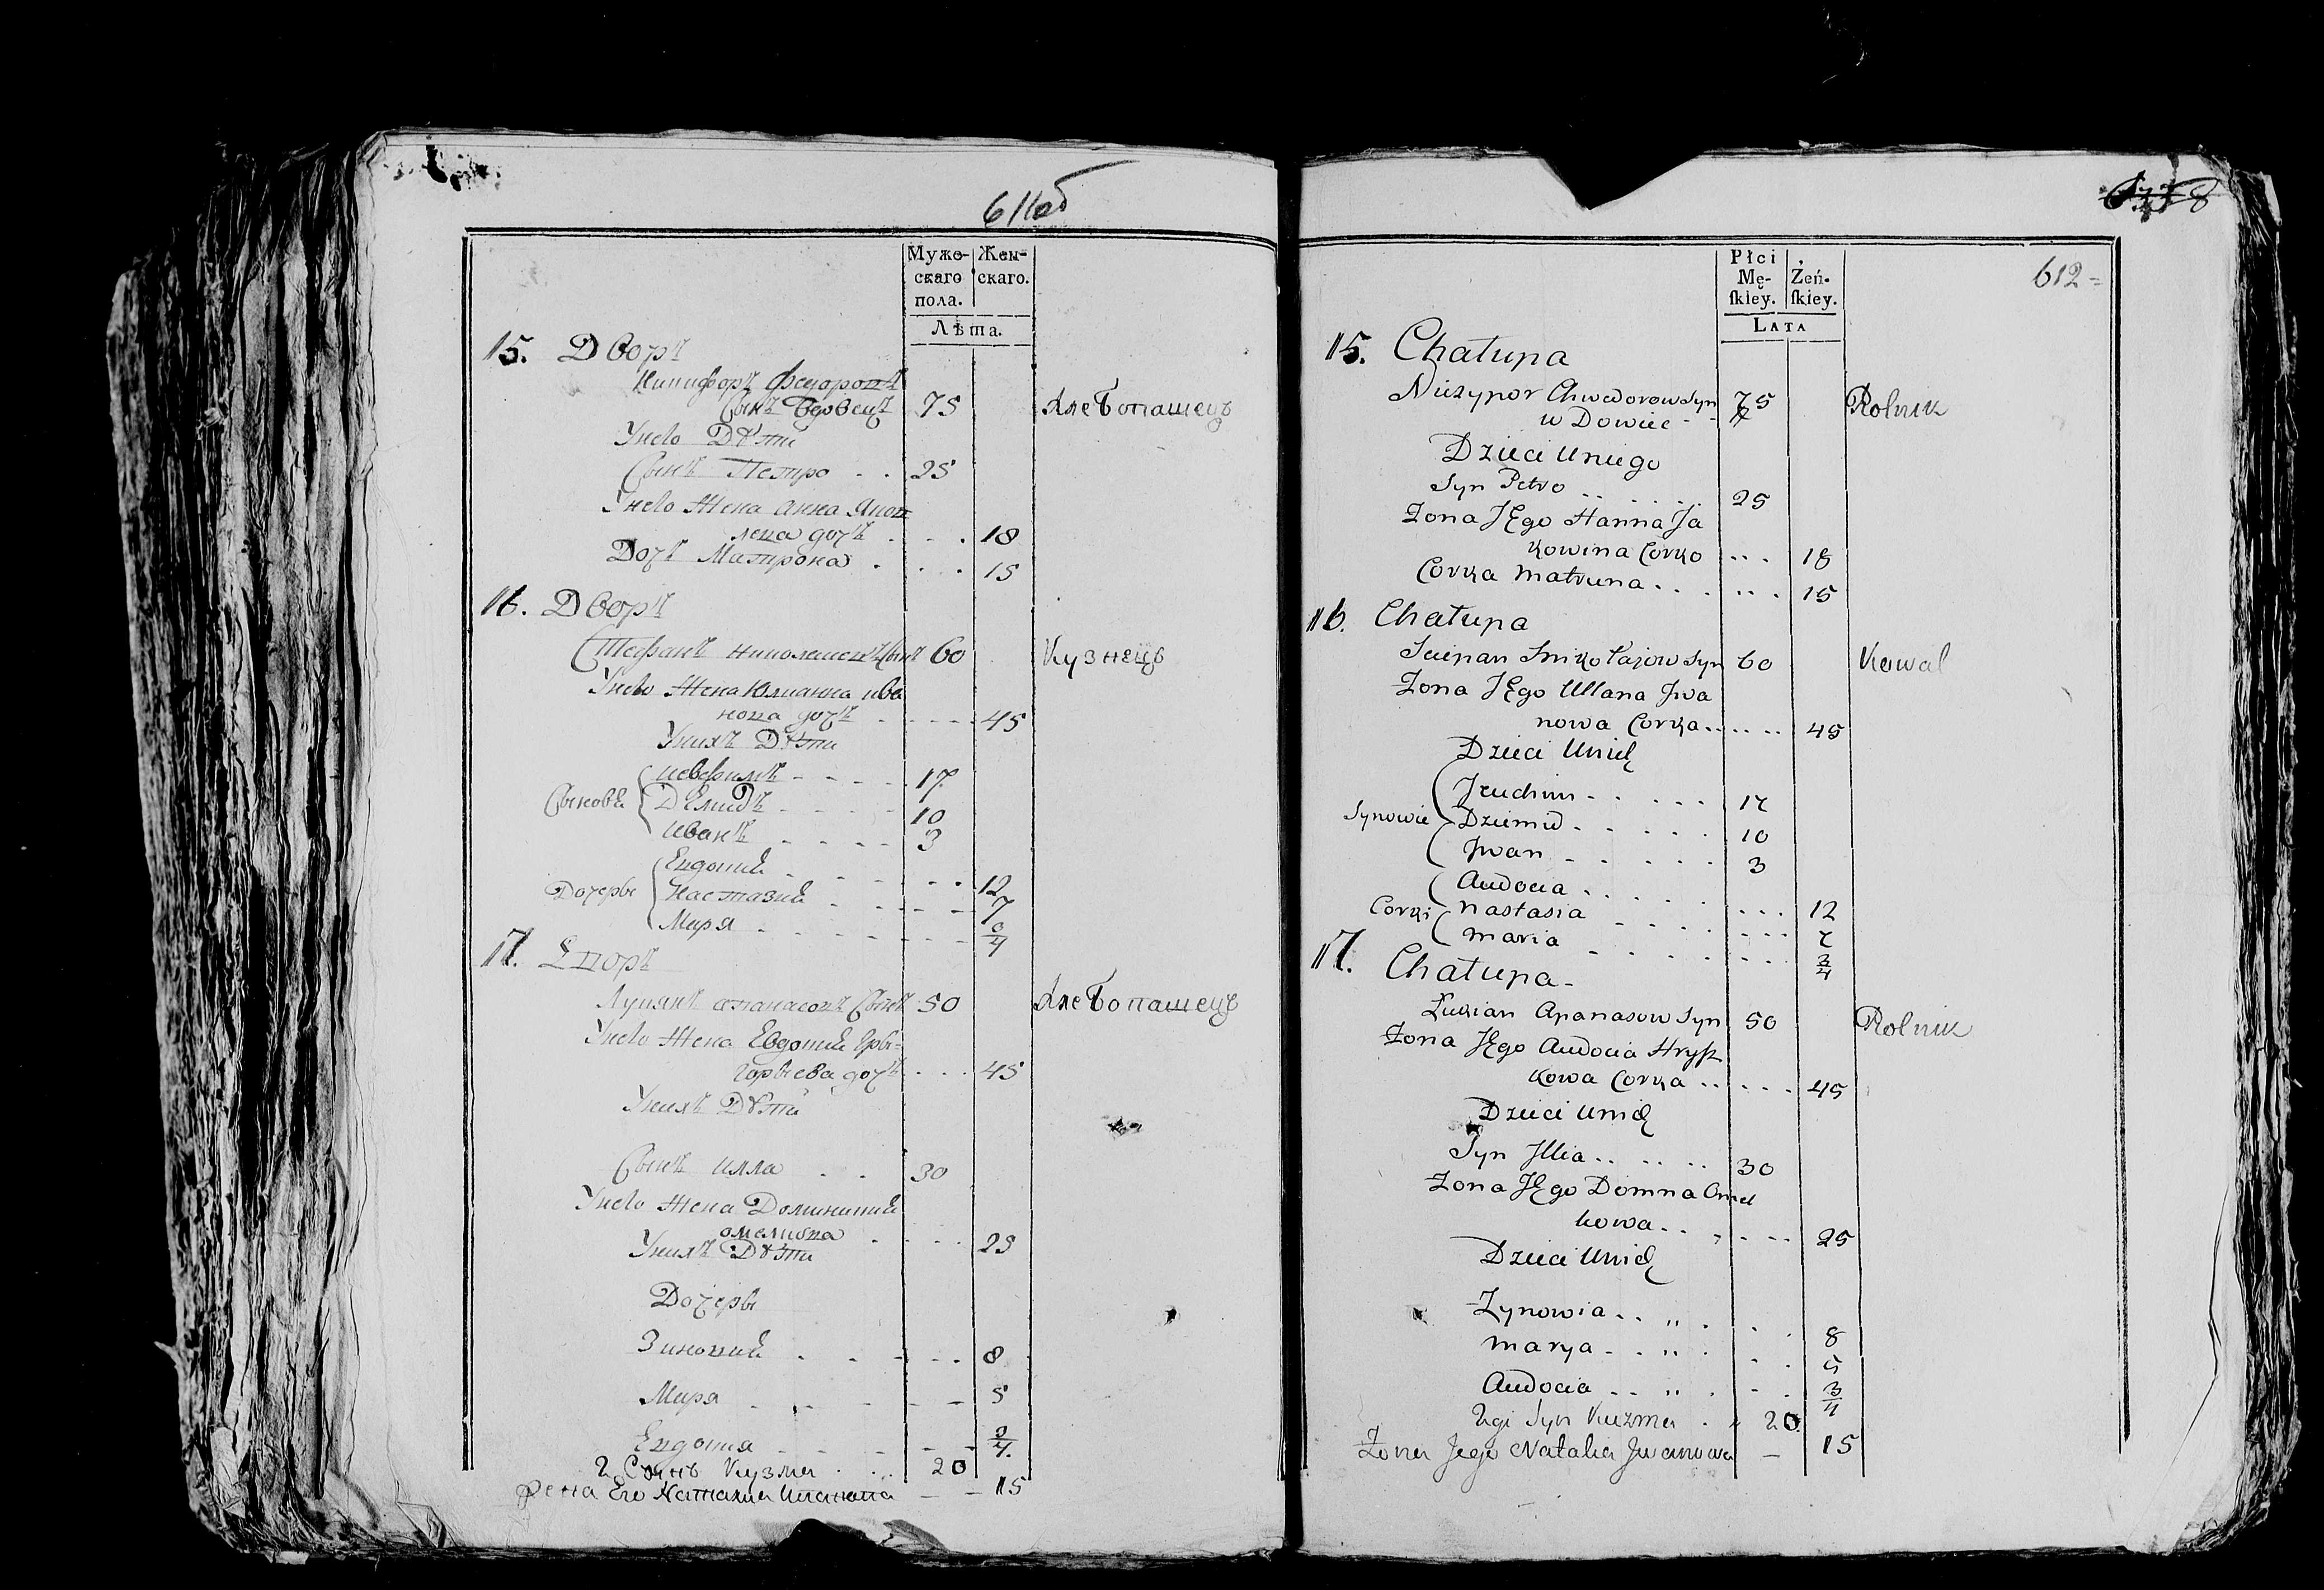 611об
Муже- Жен-
скаго скаго.
пола.
Лѣта.
15. Дворъ
Никифоръ Федоровъ
Сынъ Вдовецъ 75 Хлебопашецъ
У него Дѣти
Сынъ Петро . . 25
У него Жена Анна Яков
лева дочъ . . . . 18
Дочъ Матрона . . . . 15
16. Дворъ
Стефанъ Николаевъ Сынъ 60 Кузнецъ
У него Жена Юлианна Ива
нова дочъ . - - - - 45
У нихъ Дѣти
Сыновья
Иевфимъ - - - - 17
Демидъ - - - - 10
Иванъ - - - - 3
Дочеры
Евдокия - - - - - - 12
Настазия - - - - - - 7
Маря - - - - - - 3/4
17. Дворъ
Лукянъ Апанасовъ Сынъ 50 Хлебопашецъ
У него Жена Евдокия Гры-
горьева дочъ - - - 45
У нихъ Дѣти
Сынъ Илла . . 30
У него Жена Доминикия
Омелкова . - - - 25
У нихъ Дѣти
Дочеры
Зиновия - - - - - 8
Маря - - - - - - 5
Евдокия - - - - - 3/4
2 Сынъ Кузма . . . 20
Жена Его Наталия Иванова - - 15
612=
Płci
Mę- Żeń-
ſkiey. ſkiey.
LATA
15. Chałupa
Niczypor Chwedorow Syn 75 Rolnik
w Dowiec - -
Dzieci Uniego
Syn Petro . . . . . . 25
Żona JEgo Hanna Ja
kowina Corko . . . 18
Corka Matruna . . . . . . 15
16. Chałupa
Sciepan Mikołajow Syn 60 Kowal
Żona JEgo Ullana Jwa
nowa Corka . . . . . . 45
Dzieci Unich
Synowie
Jeuchim - - - - - 17
Dziemid - - - - - 10
Jwan - - - - - 3
Corki
Audocia . . . . . . . . 12
Nastasia - - - - - - - 7
Maria - - - - - - - 3/4
17. Chałupa -
Łukian Apanasow Syn 50 Rolnik
Żona JEgo Audocia Hrysz
kowa Corka . . . . . 45
Dzieci Unich
Syn Jllia . . . . . . 30
Żona JEgo Domna Omel
kowa . . . . - - - 25
Dzieci Unich
Zynowia . . „ . . . 8
Marya - - „ . . . 5
Audocia - - „ . - . 3/4
2gi Syn Kuzma . „ 20
Żona Jego Natalia Jwanowa - 15